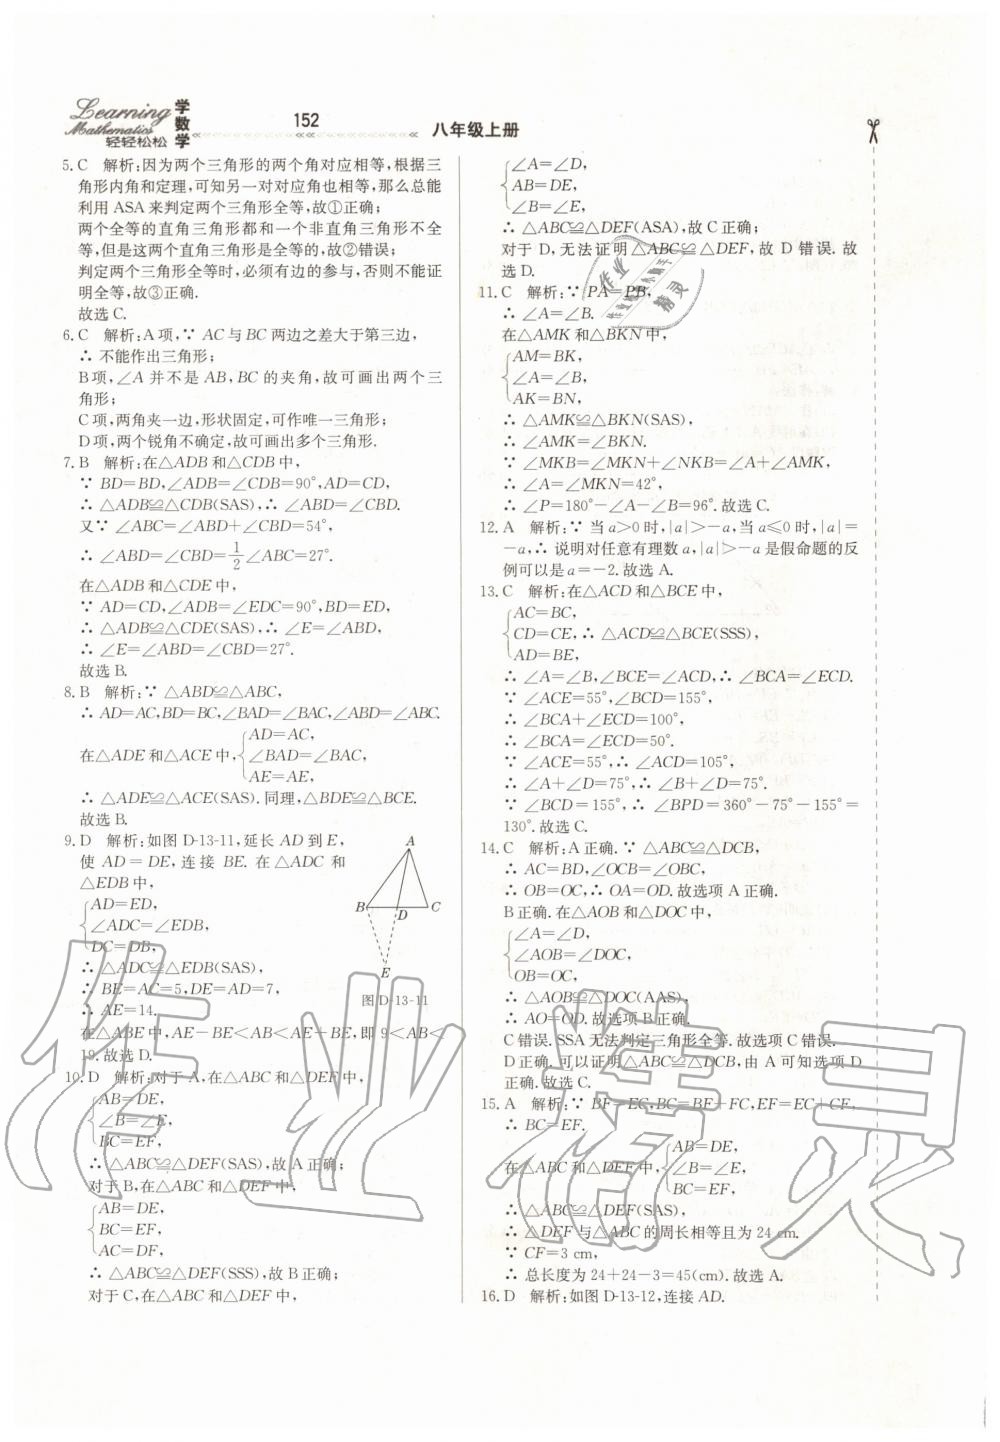 Learning
Mathematics
轻轻松松
学数学
152
八年级上册
5. C 解析:因为两个三角形的两个角对应相等,根据三
角形内角和定理,可知另一对对应角也相等,那么总能
利用 ASA 来判定两个三角形全等,故①正确;
两个全等的直角三角形都和一个非直角三角形不全
等,但是这两个直角三角形是全等的,故②错误;
判定两个三角形全等时,必须有边的参与,否则不能证
明全等,故③正确.
故选 C.
6. C 解析:A 项,∵ AC 与 BC 两边之差大于第三边,
∴ 不能作出三角形;
B 项,∠A 并不是 AB,BC 的夹角,故可画出两个三
角形;
C 项,两角夹一边,形状固定,可作唯一三角形;
D 项,两个锐角不确定,故可画出多个三角形.
7. B 解析:在△ADB 和△CDB 中,
∵ BD=BD,∠ADB=∠CDB=90°,AD=CD,
∴ △ADB≌△CDB(SAS),∴ ∠ABD=∠CBD.
又∵ ∠ABC=∠ABD+∠CBD=54°,
∴ ∠ABD=∠CBD=1/2∠ABC=27°.
在△ADB 和△CDE 中,
∵ AD=CD,∠ADB=∠EDC=90°,BD=ED,
∴ △ADB≌△CDE(SAS),∴ ∠E=∠ABD,
∴ ∠E=∠ABD=∠CBD=27°.
故选 B.
8. B 解析:∵ △ABD≌△ABC,
∴ AD=AC,BD=BC,∠BAD=∠BAC,∠ABD=∠ABC.
在△ADE 和△ACE 中,{AD=AC,
∠BAD=∠BAC,
AE=AE,
∴ △ADE≌△ACE(SAS). 同理,△BDE≌△BCE.
故选 B.
9. D 解析:如图 D-13-11,延长 AD 到 E,
使 AD=DE,连接 BE. 在△ADC 和
△EDB 中,
{AD=ED,
∠ADC=∠EDB,
DC=DB,
∴ △ADC≌△EDB(SAS),
∴ BE=AC=5,DE=AD=7,
∴ AE=14.
在△ABE 中,AE-BE<AB<AE+BE,即 9<AB<
19. 故选 D.
A
B
D
C
E
图 D-13-11
10. D 解析:对于 A,在△ABC 和△DEF 中,
{AB=DE,
∠B=∠E,
BC=EF,
∴ △ABC≌△DEF(SAS),故 A 正确;
对于 B,在△ABC 和△DEF 中,
{AB=DE,
BC=EF,
AC=DF,
∴ △ABC≌△DEF(SSS),故 B 正确;
对于 C,在△ABC 和△DEF 中,
{∠A=∠D,
AB=DE,
∠B=∠E,
∴ △ABC≌△DEF(ASA),故 C 正确;
对于 D,无法证明△ABC≌△DEF,故 D 错误. 故
选 D.
11. C 解析:∵ PA=PB,
∴ ∠A=∠B.
在△AMK 和△BKN 中,
{AM=BK,
∠A=∠B,
AK=BN,
∴ △AMK≌△BKN(SAS),
∴ ∠AMK=∠BKN.
∵ ∠MKB=∠MKN+∠NKB=∠A+∠AMK,
∴ ∠A=∠MKN=42°,
∴ ∠P=180°-∠A-∠B=96°. 故选 C.
12. A 解析:∵ 当 a>0 时,|a|>-a,当 a≤0 时,|a|=
-a,∴ 说明对任意有理数 a,|a|>-a 是假命题的反
例可以是 a=-2. 故选 A.
13. C 解析:在△ACD 和△BCE 中,
{AC=BC,
CD=CE,∴ △ACD≌△BCE(SSS),
AD=BE,
∴ ∠A=∠B,∠BCE=∠ACD,∴ ∠BCA=∠ECD.
∵ ∠ACE=55°,∠BCD=155°,
∴ ∠BCA+∠ECD=100°,
∴ ∠BCA=∠ECD=50°.
∵ ∠ACE=55°,∴ ∠ACD=105°,
∴ ∠A+∠D=75°,∴ ∠B+∠D=75°.
∵ ∠BCD=155°,∴ ∠BPD=360°-75°-155°=
130°. 故选 C.
14. C 解析:A 正确. ∵ △ABC≌△DCB,
∴ AC=BD,∠OCB=∠OBC,
∴ OB=OC,∴ OA=OD. 故选项 A 正确.
B 正确. 在△AOB 和△DOC 中,
{∠A=∠D,
∠AOB=∠DOC,
OB=OC,
∴ △AOB≌△DOC(AAS),
∴ AO=OD. 故选项 B 正确.
C 错误. SSA 无法判定三角形全等. 故选项 C 错误.
D 正确. 可以证明△ABC≌△DCB,由 A 可知选项 D
正确. 故选 C.
15. A 解析:∵ BF=EC,BC=BF+FC,EF=EC+CF,
∴ BC=EF.
在△ABC 和△DEF 中,{AB=DE,
∠B=∠E,
BC=EF,
∴ △ABC≌△DEF(SAS),
∴ △DEF 与△ABC 的周长相等且为 24 cm.
∵ CF=3 cm,
∴ 总长度为 24+24-3=45(cm). 故选 A.
16. D 解析:如图 D-13-12,连接 AD.
作业精灵